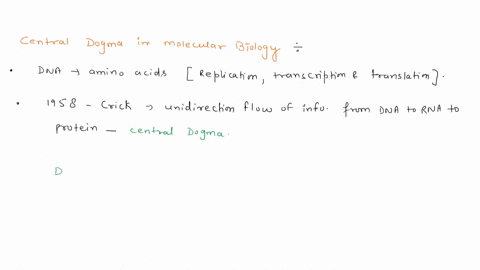 Central Dogma in molecular Biology ÷
• DNA → amino acids [Replication, transcription & translation].
• 1958 - Crick → unidirection flow of info. from DNA to RNA to
protein — central Dogma.
D